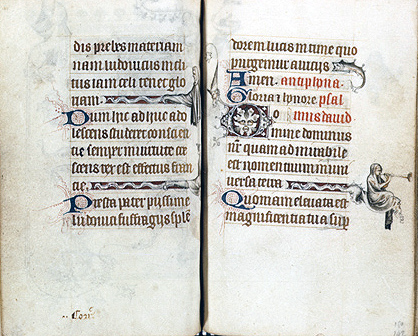 dis prebes materiam
nam ludouicus meli
tus iam celi tenet glo
riam.
Dum hic adhuc ado
lescens studeret conscien
tie semper virtute cre
scens rex est effectus fran
cie.
Presta pater piissime
ludouici suffragiis splen
dorem lucis intime quo
purgemur a viciis
Amen. antiphona.
Gloria et honore psal
mus dauid
Domine dominus
nr quam admirabile
est nomen tuum in uni
uersa terra
Quoniam eleuata est
magnificentia tua sup